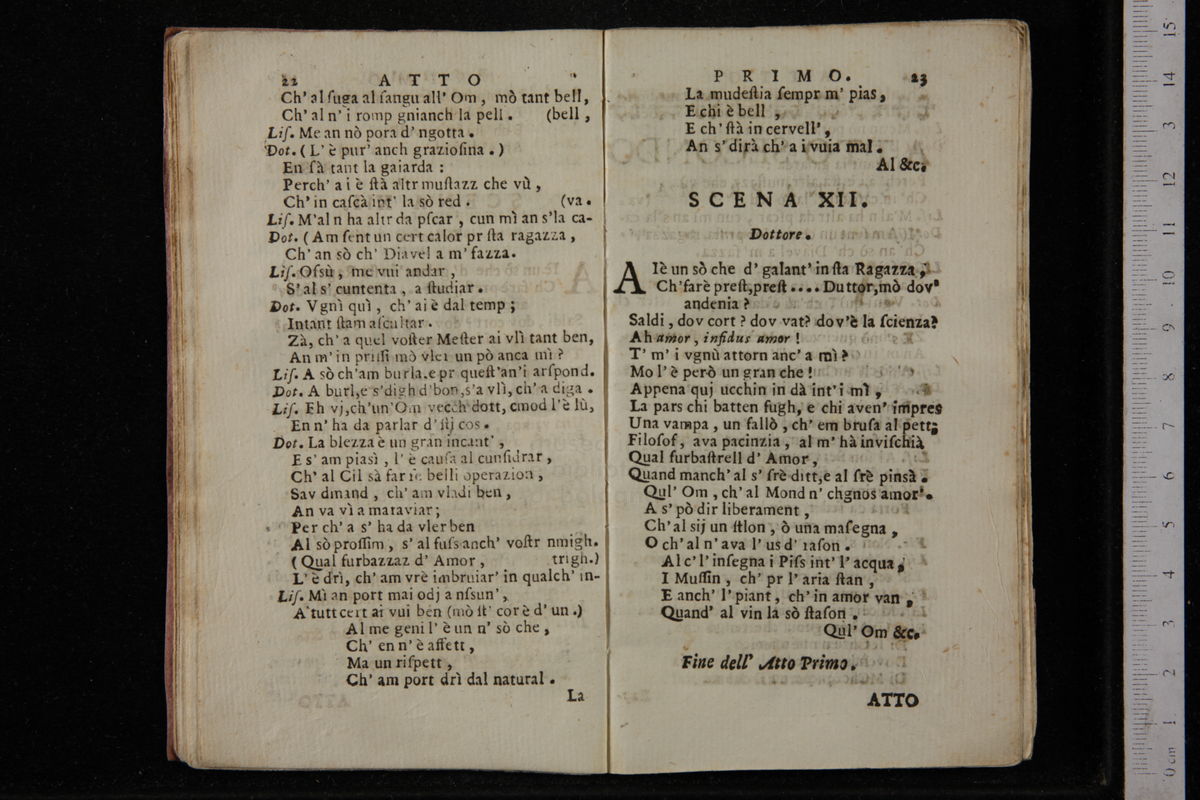 22 ATTO
Ch' al fuga al sangu all' Om, mò tant bell,
Ch' al n' i romp gnianch la pell. (bell,
Lis. Me an nò pora d' ngotta.
Dot. (L' è pur' anch graziosina.)
En sà tant la gaiarda:
Perch' a i è stà altr mustazz che vù,
Ch' in cascà int' la sò red. (va.
Lis. M'al n ha altr da pscar, cun mì an s'la ca-
Dot. (Am sent un cert calor pr sta ragazza,
Ch' an sò ch' Diavel a m' fazza.
Lis. Osù, me vui andar,
S' al s' cuntenta, a studiar.
Dot. Vgnì quì, ch' ai è dal temp;
Intant stam ascultar.
Zà, ch' a quel voster Mester ai vlì tant ben,
An m' in prissi mò vlei un pò anca mì?
Lis. A sò ch'am burla,e pr quest'an'i arspond.
Dot. A burl,e s'digh d'bon,s'a vlì, ch' a diga.
Lis. Eh vj,ch'un'Om vecch dott, cmod l'è lù,
En n' ha da parlar d' stj cos.
Dot. La blezza è un gran incant',
E s' am piasì, l' è causa al cunsidrar,
Ch' al Cil sà far ie belli operazion,
Sav dmand, ch' am vladi ben,
An va vì a maraviar;
Per ch' a s' ha da vler ben
Al sò prossim, s' al fuss anch' vostr nmigh.
(Qual furbazzaz d' Amor, trigh.)
L' è drì, ch' am vrè imbruiar' in qualch' in-
Lis. Mì an port mai odj a nssun',
A tutt cert ai vui ben (mò st' cor è d' un.)
Al me geni l' è un n' sò che,
Ch' en n' è affett,
Ma un rispett,
Ch' am port drì dal natural.
La
PRIMO. 23
La mudestia sempr m' pias,
E chi è bell,
E ch' stà in cervell',
An s' dirà ch' a i vuia mal.
Al &c.
SCENA XII.
Dottore.
A Iè un sò che d' galant' in sta Ragazza,
Ch'farè prest,prest .... Duttor,mò dov'
andenia?
Saldi, dov cort? dov vat? dov'è la scienza?
Ah amor, infidus amor!
T' m' i vgnù attorn anc' a mì?
Mo l' è però un gran che!
Appena quj ucchin in dà int' i mì,
La pars chi batten fugh, e chi aven' impres
Una vampa, un fallò, ch' em brusa al pett;
Filosof, ava pacinzia, al m' hà invischià
Qual furbastrell d' Amor,
Quand manch' al s' srè ditt,e al srè pinsà.
Qul' Om, ch' al Mond n' chgnos amor'.
A s' pò dir liberament,
Ch' al sij un stlon, ò una masegna,
O ch' al n' ava l' us d' rason.
Al c' l' insegna i Piss int' l' acqua,
I Mussin, ch' pr l' aria stan,
E anch' l' piant, ch' in amor van,
Quand' al vin la sò stason.
Qul' Om &c.
Fine dell' Atto Primo.
ATTO
15
14
13
12
11
10
9
8
7
6
5
4
3
2
1
0 cm